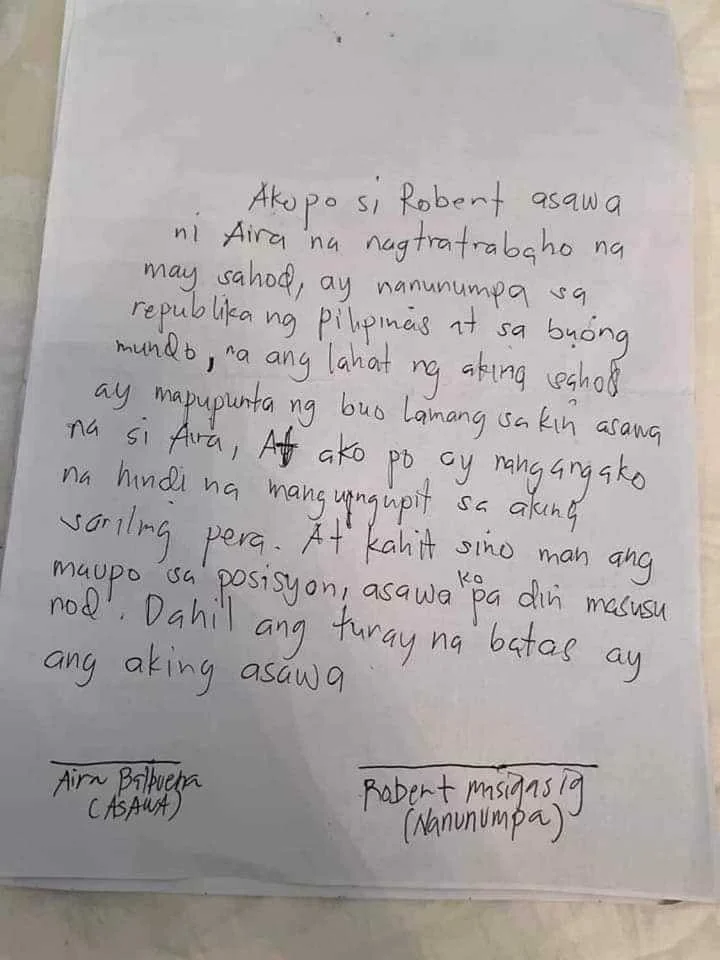 Ako po si Robert asawa
ni Aira na nagtratrabaho na
may sahod, ay nanunumpa sa
republika ng pilipinas at sa buong
mundo, na ang lahat ng aking sahod
ay mapupunta ng buo lamang sa kin asawa
na si Aira, At ako po ay nangangako
na hindi na mangungupit sa aking
sariling pera. At kahit sino man ang
maupo sa posisyon, asawa ko pa din masusu
nod. Dahil ang tunay na batas ay
ang aking asawa
Aira Balbuena
(ASAWA)
Robert masigasig
(Nanunumpa)